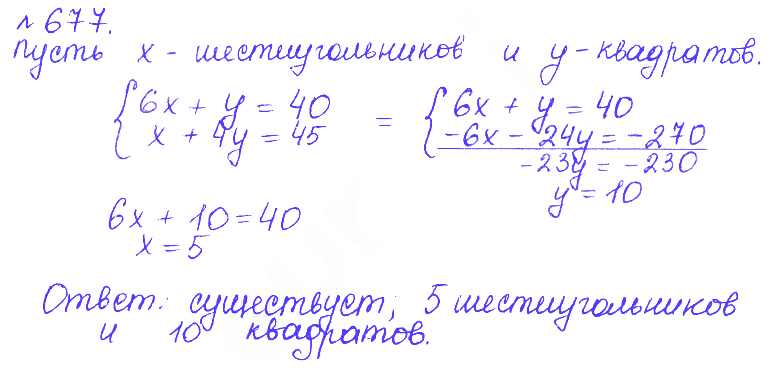 № 677.
пусть x - шестиугольников и y - квадратов.
{ 6x + y = 40 = { 6x + y = 40
x + 4y = 45 -6x - 24y = -270
-23y = -230
y = 10
6x + 10 = 40
x = 5
Ответ: существует, 5 шестиугольников
и 10 квадратов.